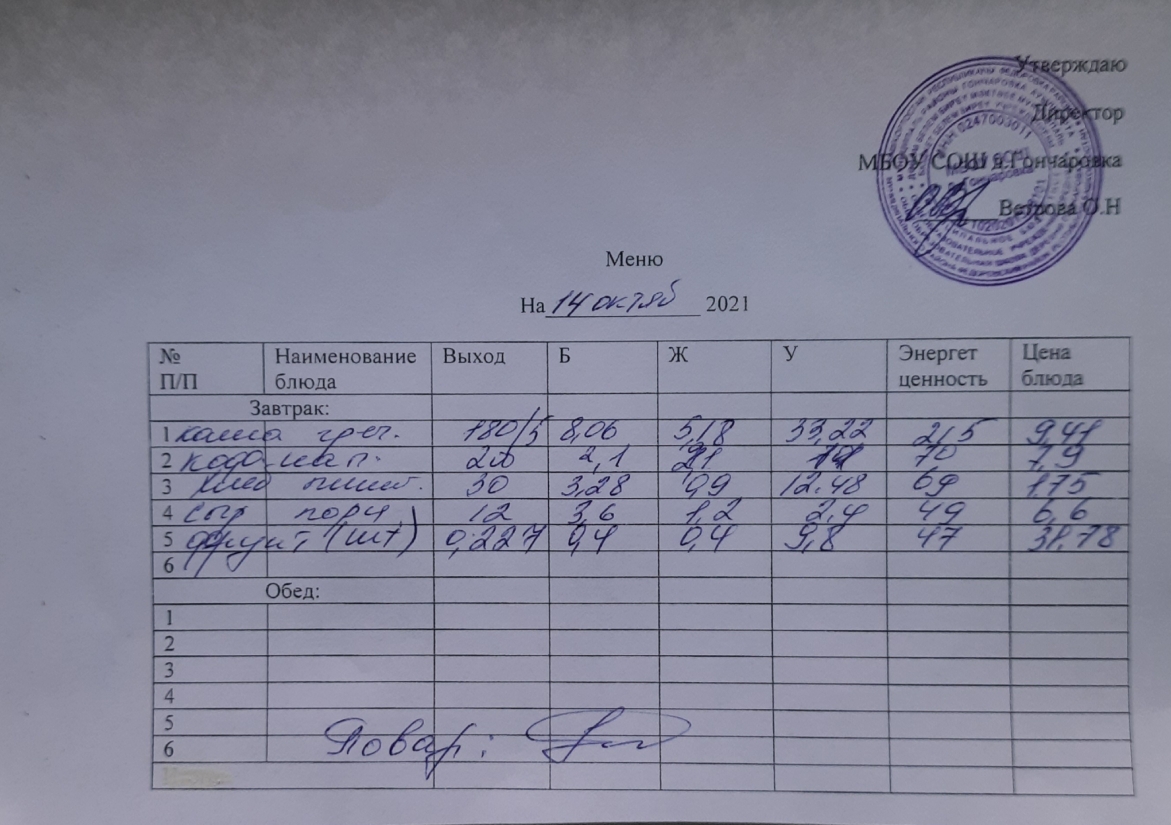 Утверждаю
Директор
МБОУ СОШ д.Гончаровка
Ветрова О.Н
ИНН 0247003011
Меню
На 14 октяб 2021
№ П/П Наименование блюда Выход Б Ж У Энергет ценность Цена блюда
Завтрак:
1 каша греч. 180/5 8,06 5,18 33,22 215 9,41
2 200 2,1 70 7,9
3 хлеб пшен. 30 3,28 0,9 12.48 69 1.75
4 сыр порц 12 3,6 1,2 2.4 49 6,6
5 фрукт, (шт) 0,227 0,4 0,4 9,8 47 31,78
6
Обед:
1
2
3
4
5
6
Повар: